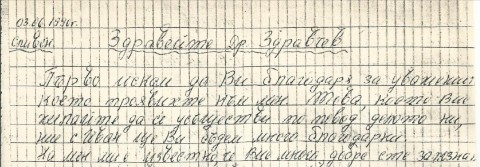 03.06.1996г.
Сливен. Здравейте Др. Здравчев
Първо искам да Ви благодаря за уважени
което проявихте към мен. Това, което Вие
желайте да се усъществи по повод делото ни,
ние с Иван ще Ви бъдем много благодарни.
На мен ми е известно, че Вие имали добре сте запозна